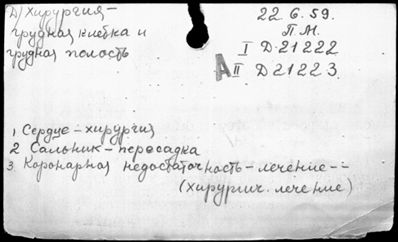 Д) Хирургия-
грудная клетка и
грудная полость
22.6.59.
П.М.
I Д-21222
A II Д21223.
1 Сердце-хирургия
2 Сальник-пересадка
3 Коронарная недостаточность-лечение--
(хирургич. лечение)